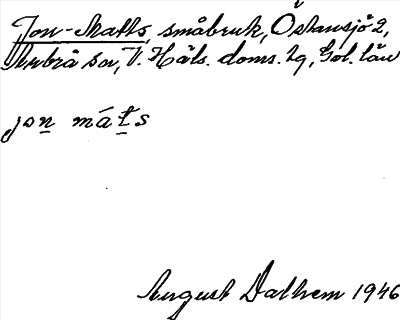 Jon-Matts, småbruk, Östansjö 2,
Arbrå sn, V. Häls. doms. tg, Gvl. län
jon máts
August Dalhem 1946